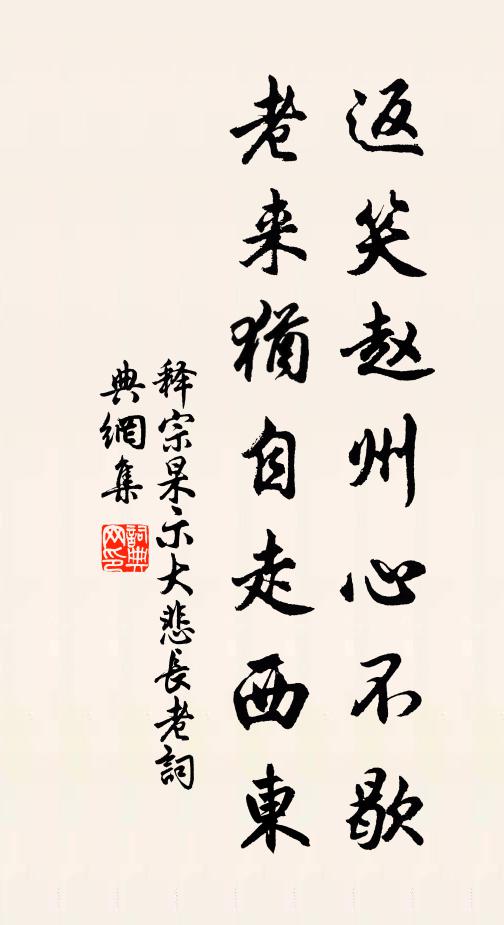 返笑赵州心不歇
老来犹自走西東
释宗杲示大悲長老詞
典網集
詞典
网印